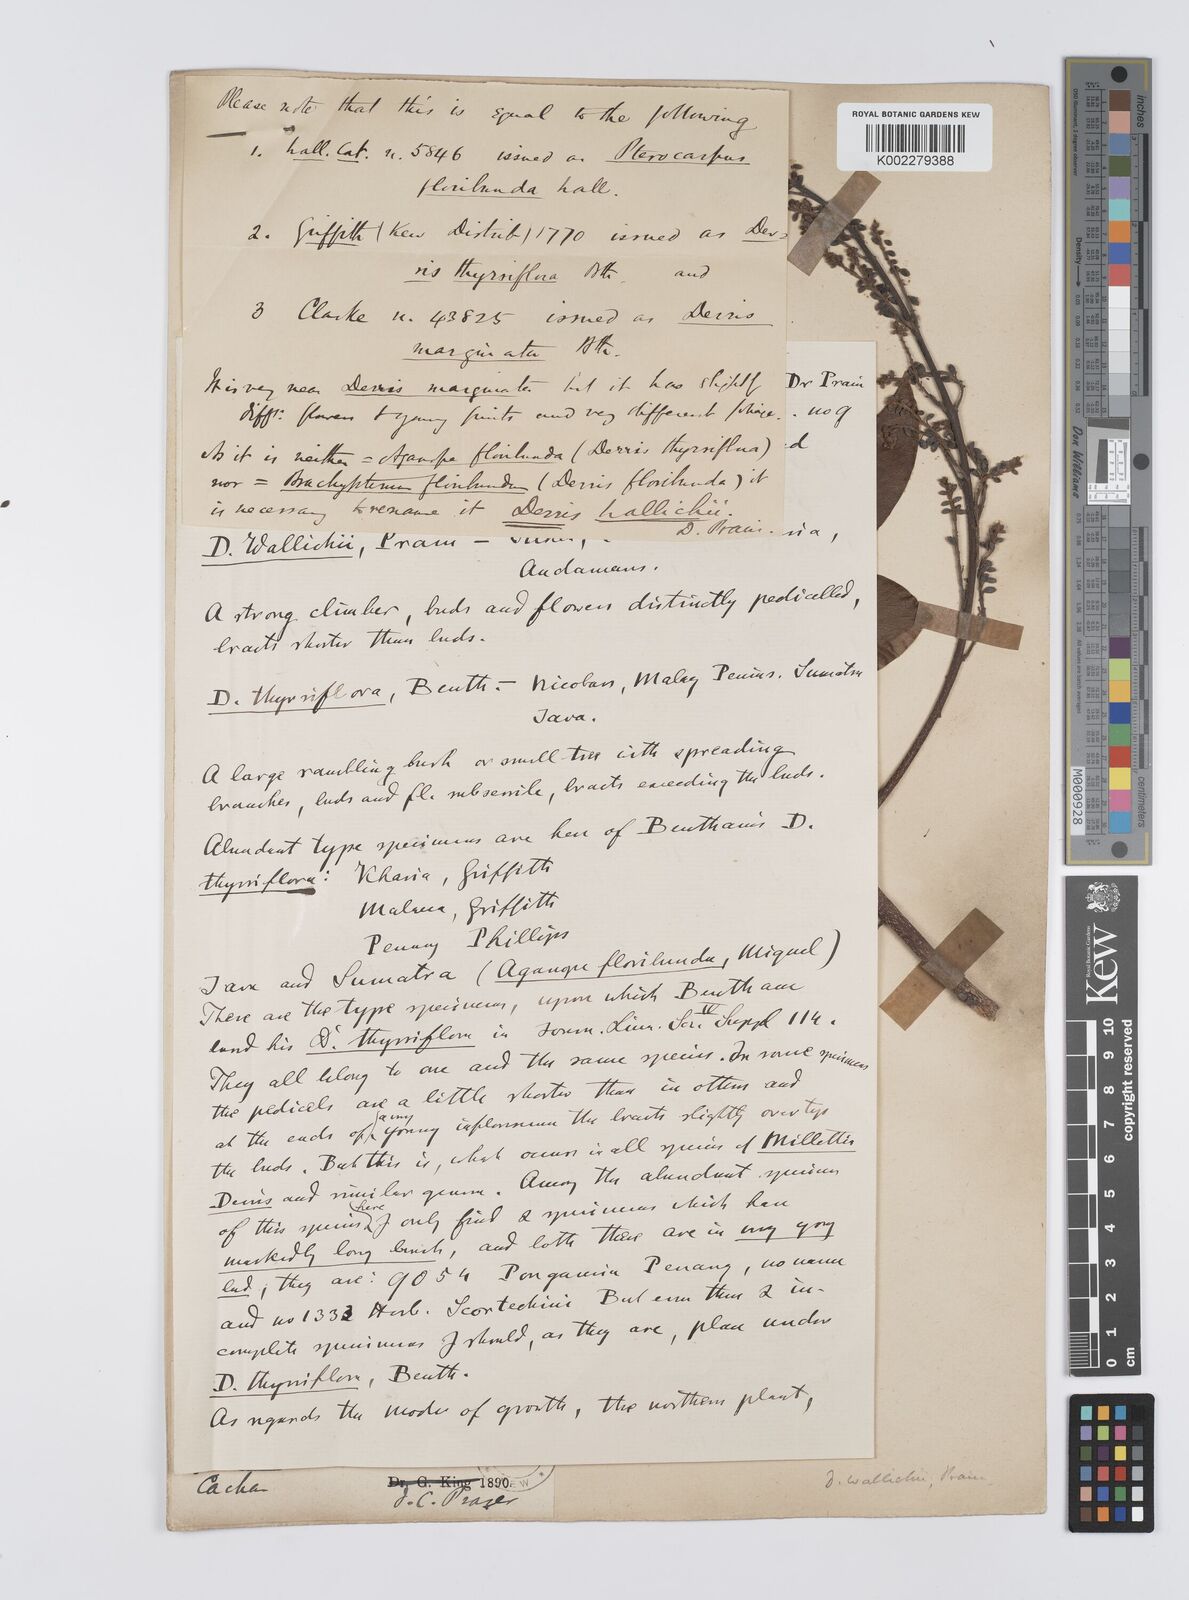 Please note that this is equal to the following
1. Wall. Cat. n. 5846 issued as Pterocarpus
floribunda Wall.
2. Griffith (Kew Distrib) 1770 issued as Der-
ris thyrsiflora Bth. and
3 Clarke n. 43825 issued as Derris
marginata Bth.
It is very near Derris marginata but it has slightly
diff: flowers & young fruits and very different foliage.
As it is neither = Aganope floribunda (Derris thyrsiflora)
nor = Brachypterum floribundum (Derris floribunda) it
is necessary to rename it Derris Wallichii.
D. Prain.
Dr Prain
D. Wallichii, Prain –
Andamans.
A strong climber, buds and flowers distinctly pedicelled,
bracts shorter than buds.
D. thyrsiflora, Benth. – Nicobars, Malay Penins. Sumatra
Java.
A large rambling bush or small tree with spreading
branches, buds and fl. subsessile, bracts exceeding the buds.
Abundant type specimens are here of Bentham's D.
thyrsiflora: Khasia, Griffith
Malacca, Griffith
Penang Phillips
Java and Sumatra (Aganope floribunda, Miquel)
These are the type specimens, upon which Bentham
based his D. thyrsiflora in Journ. Linn. Soc. IV Suppl 114.
They all belong to one and the same species. In some specimens
the pedicels are a little shorter than in others and
at the ends of young inflorescences the bracts slightly overtop
the buds. But this is, what occurs in all species of Millettia
Derris and similar genera. Among the abundant specimens
of this species here I only find 2 specimens which have
markedly long bracts, and both these are in very young
bud; they are: 9054 Pongamia Penang, no name
and no 1332 Herb. Scortechini But even these 2 in-
complete specimens I should, as they are, place under
D. thyrsiflora, Benth.
As regards the mode of growth, the northern plant,
Cachar
Dr. G. King 1890.
J. C. Prazer
D. Wallichii, Prain
ROYAL BOTANIC GARDENS KEW
K002279388
inches
Don Williams
centimeters
M000928
Kew
Royal Botanic Gardens
copyright reserved
0 1 2 3 4 5 6 7 8 9 10 cm